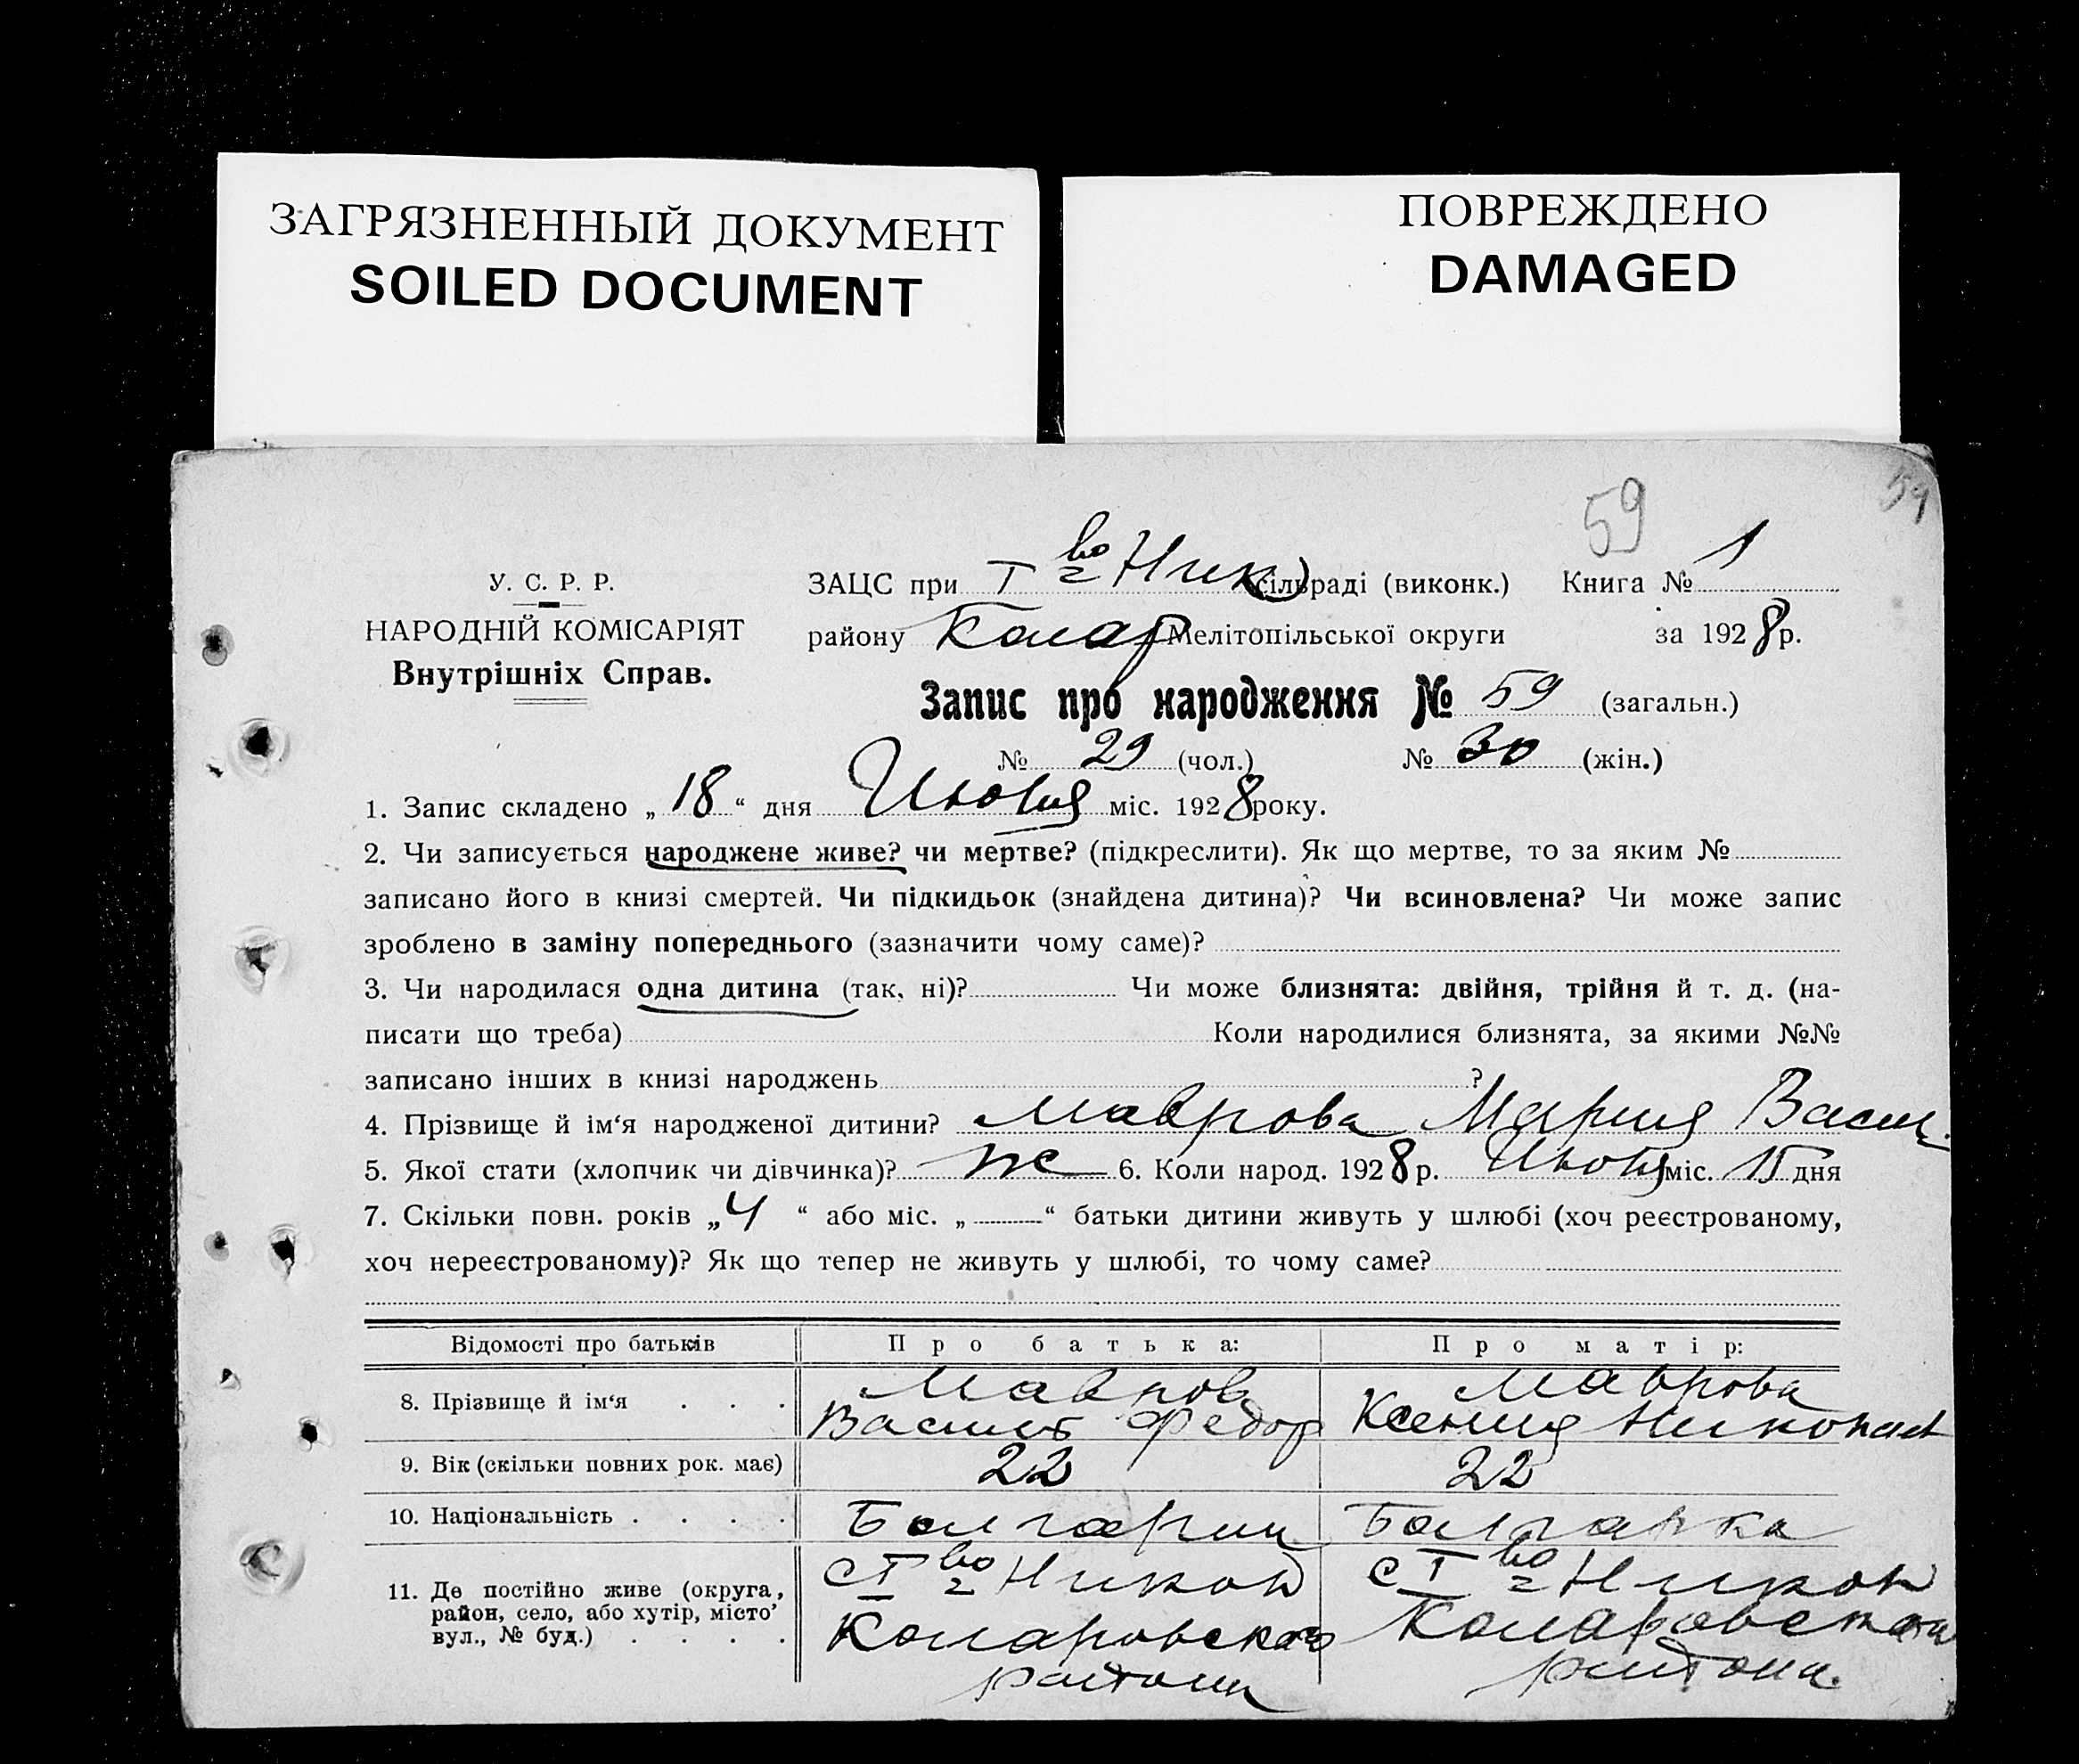 ЗАГРЯЗНЕННЫЙ ДОКУМЕНТ
SOILED DOCUMENT
ПОВРЕЖДЕНО
DAMAGED
59
59
У. С. Р. Р.
НАРОДНІЙ КОМІСАРІЯТ
Внутрішніх Справ.
ЗАЦС при I во Ник сільраді (виконк.) Книга № 1
району Колар Мелітопільської округи за 1928 р.
Запис про народження № 59 (загальн.)
№ 29 (чол.) № 30 (жін.)
1. Запис складено „ 18 “ дня Июня міс. 1928 року.
2. Чи записується народжене живе? чи мертве? (підкреслити). Як що мертве, то за яким №
записано його в книзі смертей. Чи підкидьок (знайдена дитина)? Чи всиновлена? Чи може запис
зроблено в заміну попереднього (зазначити чому саме)?
3. Чи народилася одна дитина (так, ні)? Чи може близнята: двійня, трійня й т. д. (на-
писати що треба) Коли народилися близнята, за якими №№
записано інших в книзі народжень ?
4. Прізвище й ім‘я народженої дитини? Маврова Мария Васил.
5. Якої стати (хлопчик чи дівчинка)? ж 6. Коли народ. 1928 р. міс. 15 дня
7. Скільки повн. років „ 4 “ або міс. „ “ батьки дитини живуть у шлюбі (хоч реєстрованому,
хоч нереєстрованому)? Як що тепер не живуть у шлюбі, то чому саме?
Відомості про батьків Про батька: Про матір:
8. Прізвище й ім‘я . . . Мавров Маврова
Василь Федор Ксения Николает
9. Вік (скільки повних рок. має) 22 22
10. Національність . . . . Болгарин Болгарка
11. Де постійно живе (округа,
район, село, або хутір, місто’
вул., № буд.) . . . .
с I во Никол с I во Никол
Коларовского Коларовского
района района.